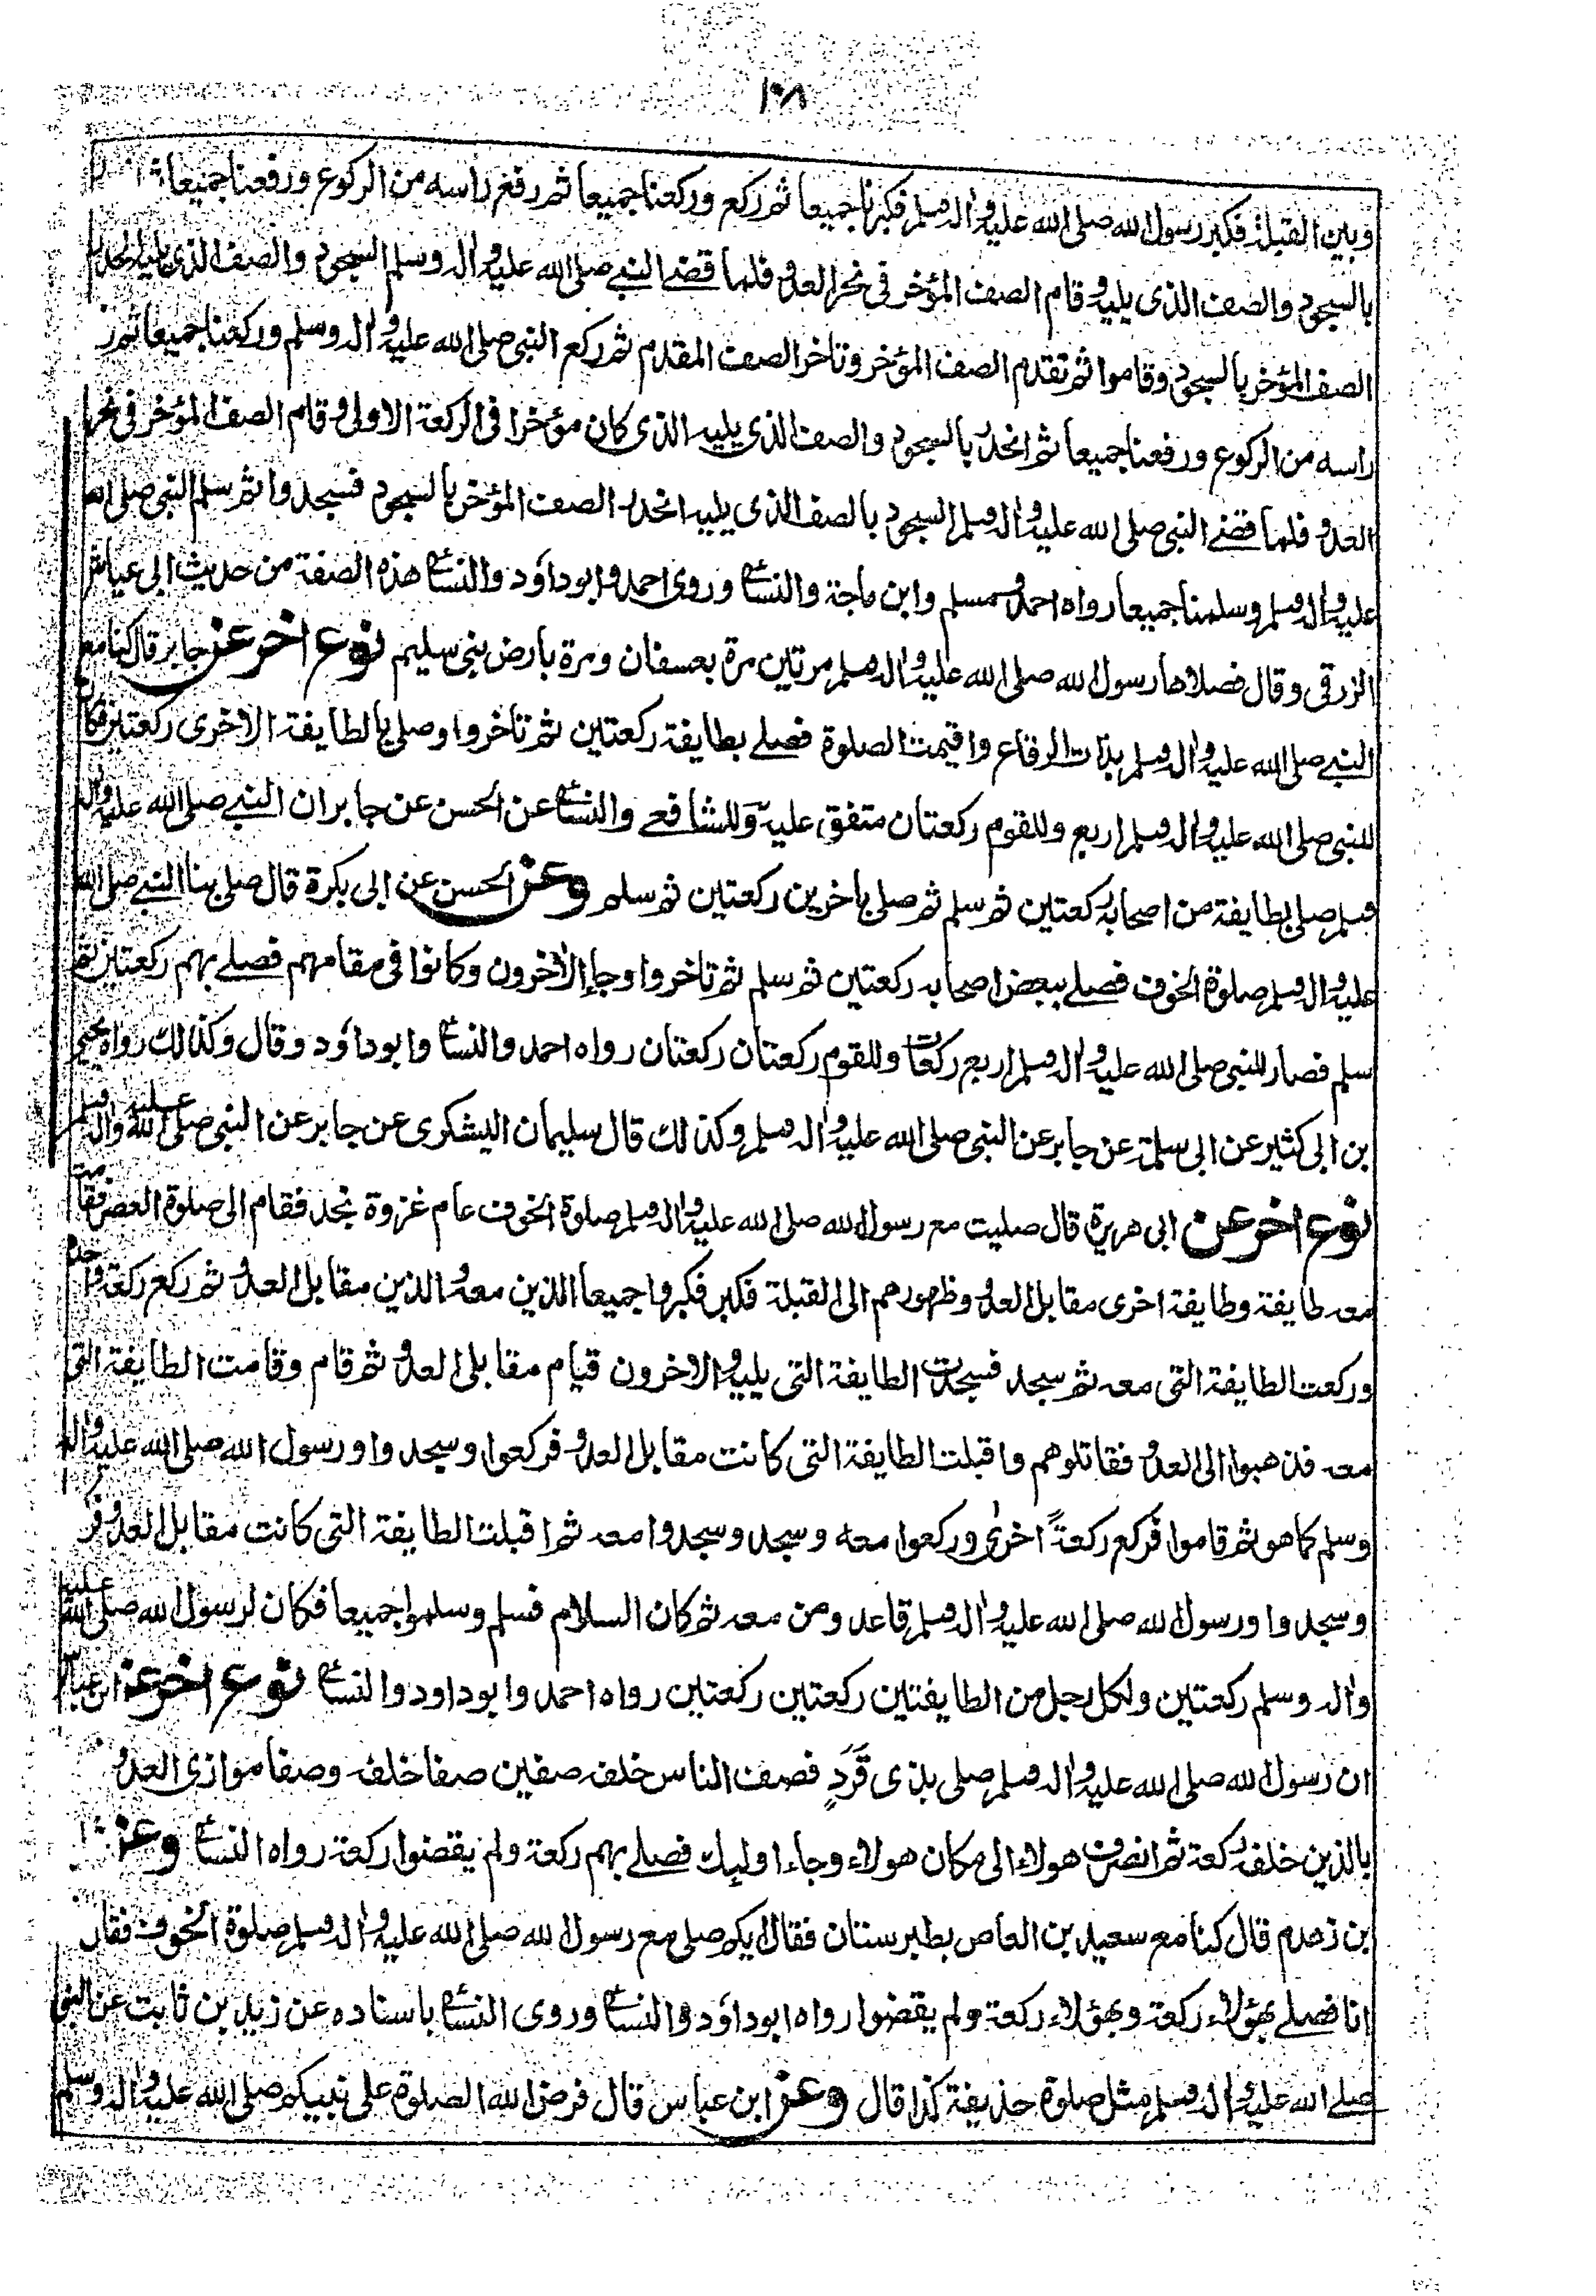 ١٠٨
وبين القبلة فكبر رسول الله صلى الله عليه واله وسلم فكبرنا جميعا ثم ركع وركعنا جميعا ثم رفع رأسه من الركوع ورفعنا جميعا
بالسجود والصف الذى يليه وقام الصف المؤخر فى نحر العدو فلما قضى النبى صلى الله عليه واله وسلم السجود والصف الذى يليه انحدر
الصف المؤخر بالسجود وقاموا ثم تقدم الصف المؤخر وتاخر الصف المقدم ثم ركع النبى صلى الله عليه واله وسلم وركعنا جميعا ثم ر
راسه من الركوع ورفعنا جميعا ثم انحدر بالسجود والصف الذى يليه الذى كان مؤخرا فى الركعة الاولى وقام الصف المؤخر فى نحر
العدو فلما قضى النبى صلى الله عليه واله وسلم السجود بالصف الذى يليه انحدر الصف المؤخر بالسجود فسجدوا ثم سلم النبى صلى الله
عليه واله وسلم وسلمنا جميعا رواه احمد ومسلم وابن ماجة والنسائى وروى احمد وابو داود والنسائى هذه الصفة من حديث ابى عياش
الزرقى وقال فصلاها رسول الله صلى الله عليه واله وسلم مرتين مرة بعسفان ومرة بارض بنى سليم نوع اخر عن جابر قال كنا مع
النبى صلى الله عليه واله وسلم بذات الرقاع واقيمت الصلوة فصلى بطايفة ركعتين ثم تاخروا وصلى بالطايفة الاخرى ركعتين فكان
للنبى صلى الله عليه واله وسلم اربع وللقوم ركعتان متفق عليه وللشافعى والنسائى عن الحسن عن جابر ان النبى صلى الله عليه واله
وسلم صلى بطايفة من اصحابه ركعتين ثم سلم ثم صلى باخرين ركعتين ثم سلم وعن الحسن عن ابى بكرة قال صلى بنا النبى صلى الله
عليه واله وسلم صلوة الخوف فصلى ببعض اصحابه ركعتين ثم سلم ثم تاخروا وجاء الاخرون وكانوا فى مقامهم فصلى بهم ركعتين ثم
سلم فصار للنبى صلى الله عليه واله وسلم اربع ركعات وللقوم ركعتان ركعتان رواه احمد والنسائى وابو داود وقال وكذلك رواه يحيى
بن ابى كثير عن ابى سلمة عن جابر عن النبى صلى الله عليه واله وسلم وكذلك قال سليمان اليشكرى عن جابر عن النبى صلى الله عليه واله وسلم
نوع اخر عن ابى هريرة قال صليت مع رسول الله صلى الله عليه واله وسلم صلوة الخوف عام غزوة نجد فقام الى صلوة العصر فقامت
معه طايفة وطايفة اخرى مقابل العدو وظهورهم الى القبلة فكبر فكبروا جميعا الذين معه والذين مقابل العدو ثم ركع ركعة واحدة
وركعت الطايفة التى معه ثم سجد فسجدت الطايفة التى يليه والاخرون قيام مقابلى العدو ثم قام وقامت الطايفة التى
معه فذهبوا الى العدو فقاتلوهم واقبلت الطايفة التى كانت مقابل العدو فركعوا وسجدوا ورسول الله صلى الله عليه واله
وسلم كما هو ثم قاموا فركع ركعةً اخرى وركعوا معه وسجد وسجدوا معه ثم اقبلت الطايفة التى كانت مقابل العدو فر
وسجدوا ورسول الله صلى الله عليه واله وسلم قاعد ومن معه ثم كان السلام فسلم وسلموا جميعا فكان لرسول الله صلى الله عليه
واله وسلم ركعتين ولكل رجل من الطايفتين ركعتين ركعتين رواه احمد وابو داود والنسائى نوع اخر عن ابن عباس
ان رسول الله صلى الله عليه واله وسلم صلى بذى قَرَدٍ فصف الناس خلفه صفين صفا خلفه وصفا موازى العدو
بالذين خلفه ركعة ثم انصرف هولاء الى مكان هولاء وجاء اولئك فصلى بهم ركعة ولم يقضوا ركعة رواه النسائى وعن
بن زهدم قال كنا مع سعيد بن العاص بطبرستان فقال ايكم صلى مع رسول الله صلى الله عليه واله وسلم صلوة الخوف فقال
انا فصلى بهؤلاء ركعة وبهؤلاء ركعة ولم يقضوا رواه ابو داود والنسائى وروى النسائى باسناده عن زيد بن ثابت عن النبى
صلى الله عليه واله وسلم مثل صلوة حذيفة كذا قال وعن ابن عباس قال فرض الله الصلوة على نبيكم صلى الله عليه واله وسلم